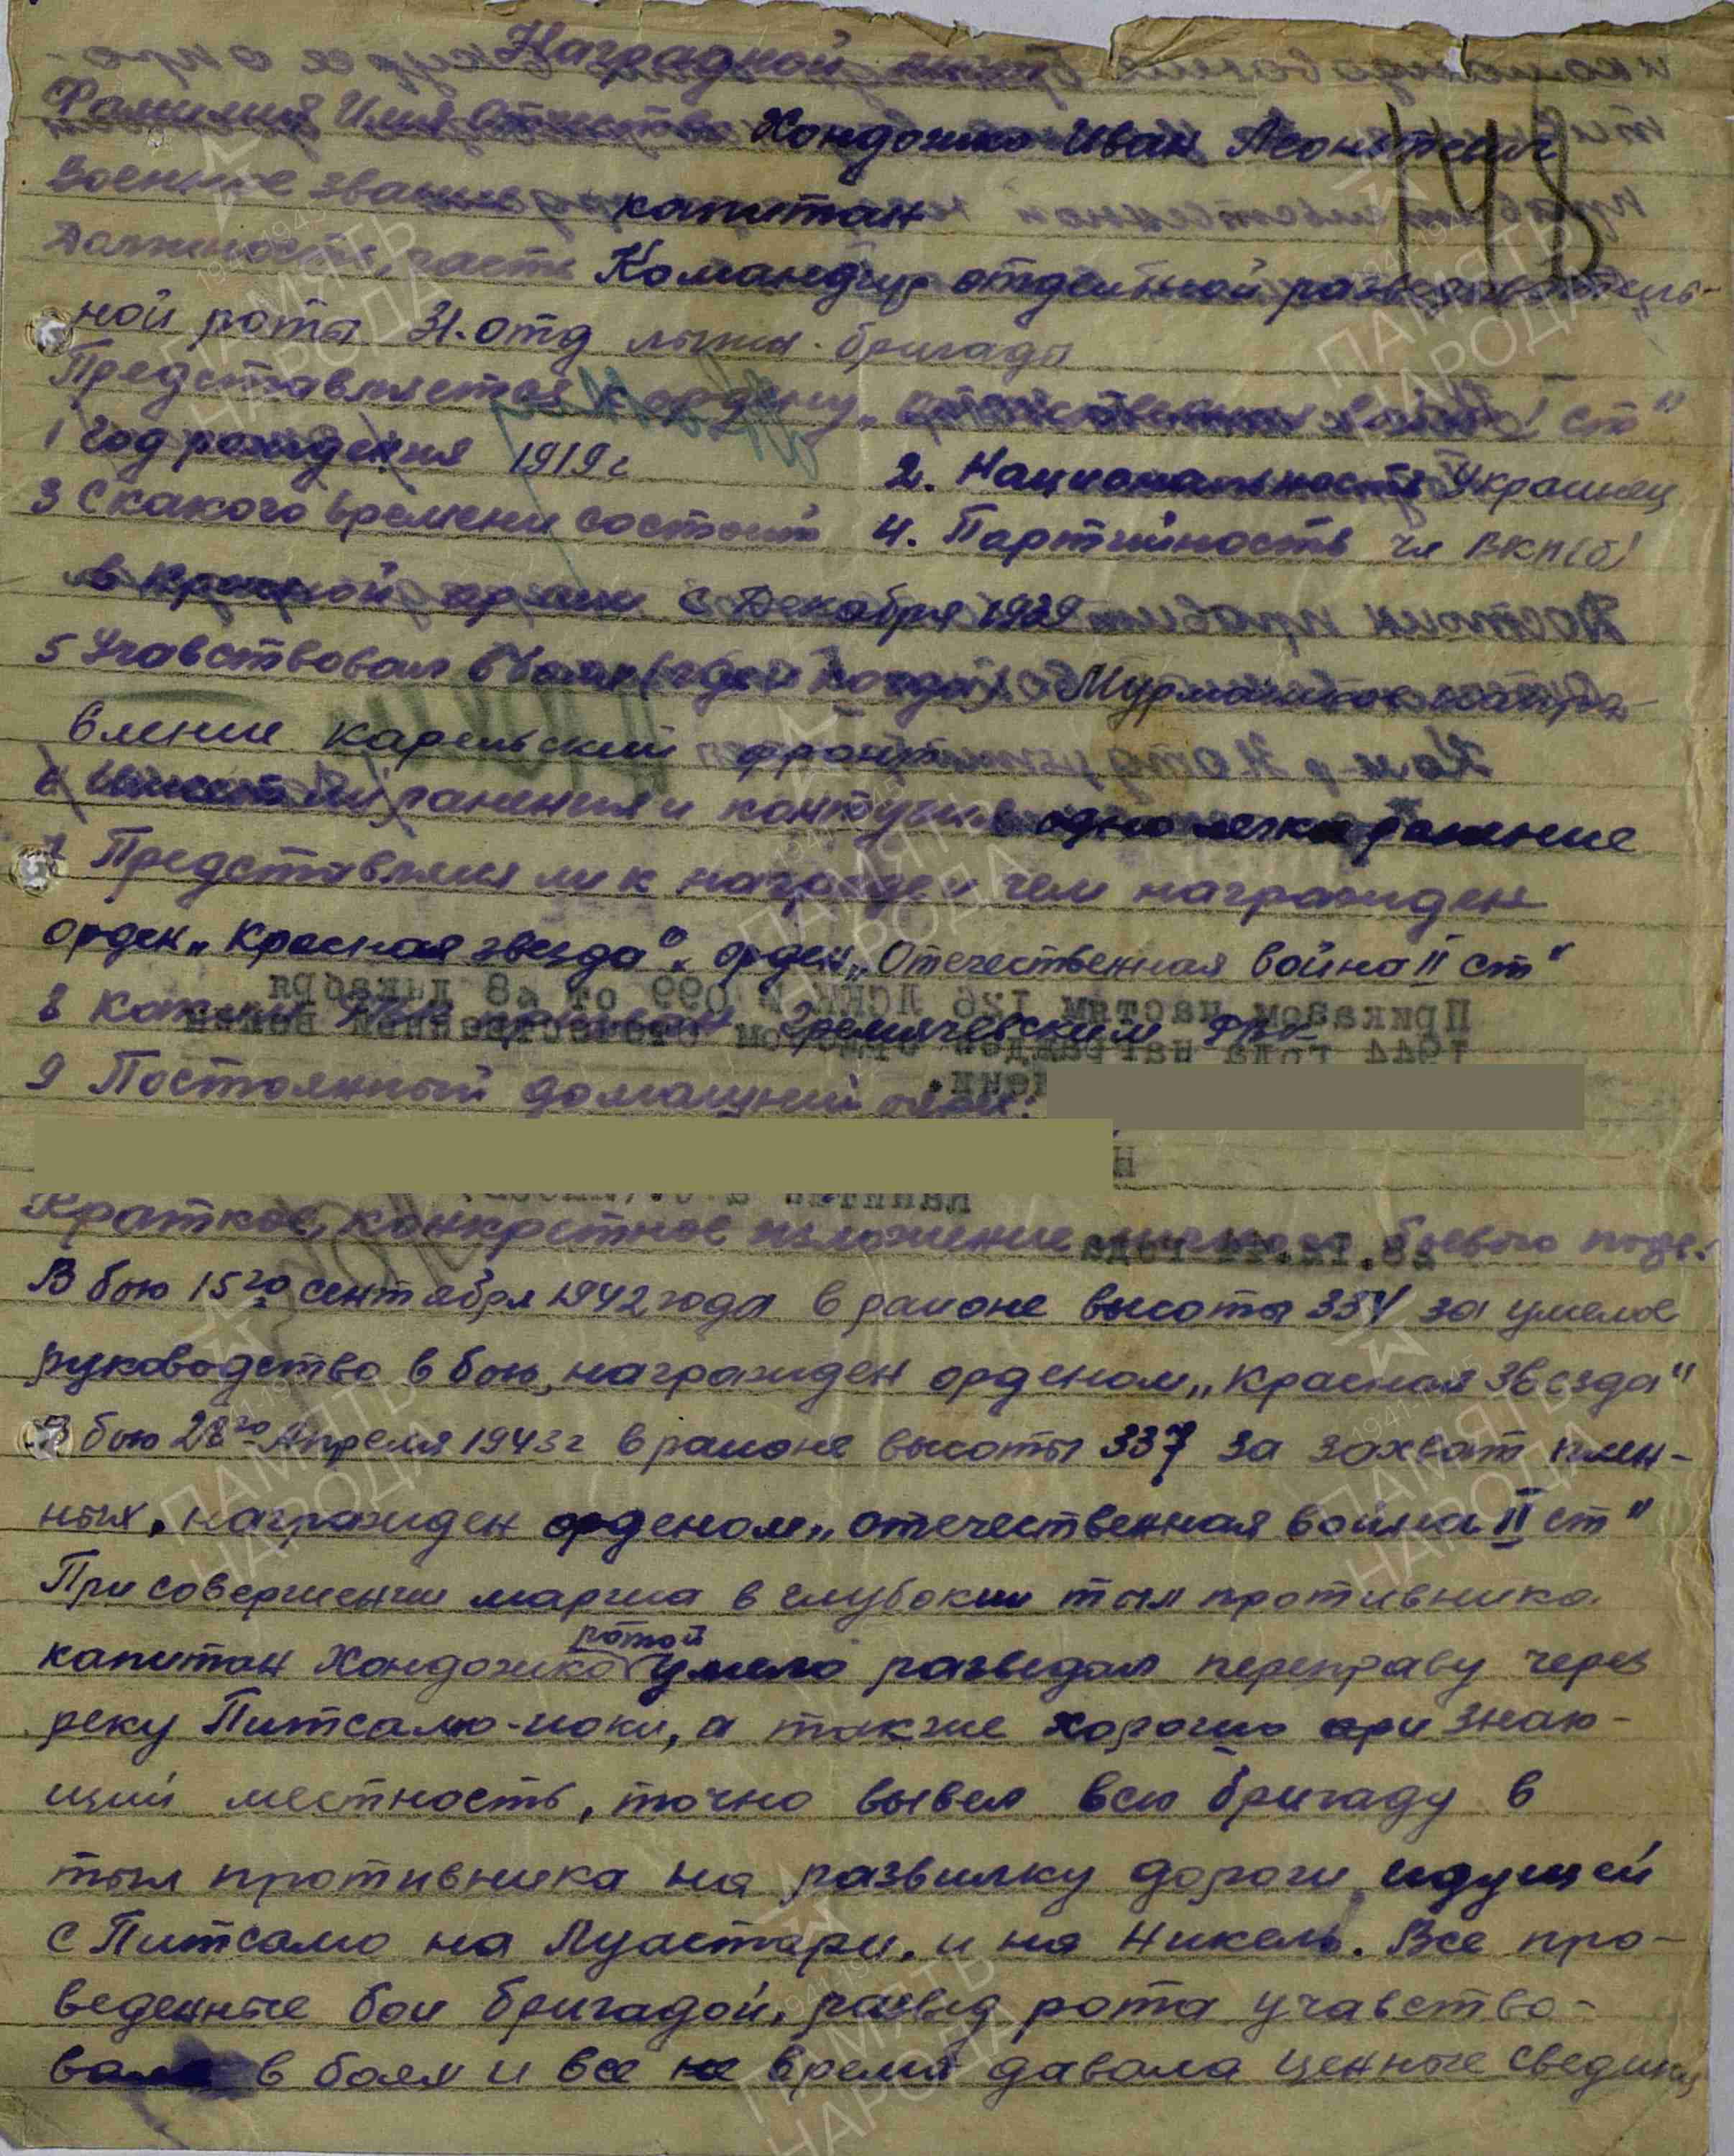 Наградной лист
Фамилия Имя Отчество Хондожко Иван Леонтьевич
148
Военное звание капитан
Должность, часть Командир отдельной разведыватель-
ной роты 31. отд лыжн. бригады
Представляется к ордену „Отечественная война I ст"
1 Год рождения 1919 г 2. Национальность Украинец
3 С какого времени состоит 4. Партийность чл ВКП(б)
в красной армии с Декабря 1939
5 Учавствовал в боях (где и когда) Мурманское напра-
вление карельский фронт
6 Имеет ли ранения и контузии одно легкое ранение
7 Представлялся ли к награде и чем награжден
орден „Красная звезда", орден „Отечественная война II ст"
8 Каким РВК призван Гремячевским РВК
9 Постоянный домашний адрес:
Приказом частям 126 ЛСКК № 099 от 28 декабря
1944 года награжден орденом отечественной войны
28.12.44 года
Краткое, конкретное изложение личного боевого подв.
В бою 15го сентября 1942 года в районе высоты 334 за умелое
руководство в бою, награжден орденом „Красная Звезда"
В бою 28го Апреля 1943 г в районе высоты 337 за захват плен-
ных, награжден орденом „Отечественная война II ст"
При совершении марша в глубокий тыл противника
капитан Хондожко ротой умело разведал переправу через
реку Питсамо-иоки, а также хорошо ори знаю-
щий местность, точно вывел всю бригаду в
тыл противника на развилку дороги идущей
с Питсамо на Луастари, и на Никель. Все про-
веденные бои бригадой, развед рота учавство-
вала в боях и все время давала ценные сведения
ПАМЯТЬ НАРОДА
1941-1945